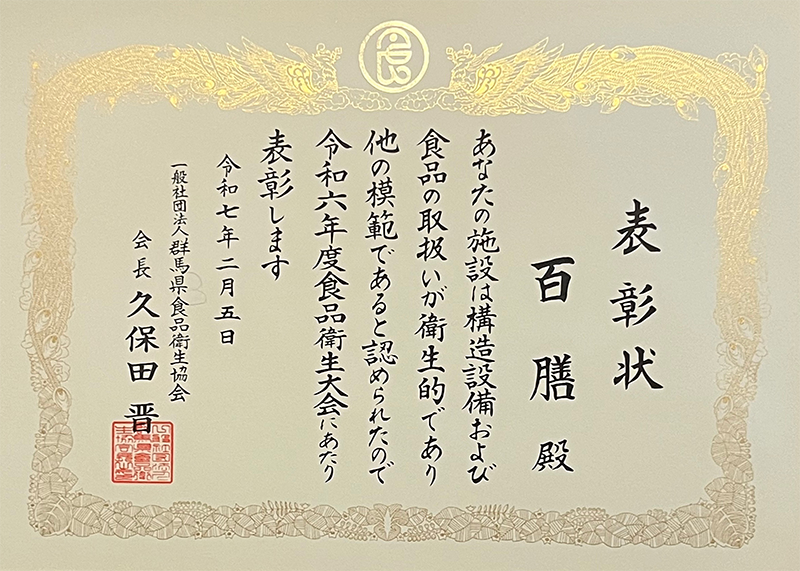 表彰状
百膳殿
あなたの施設は構造設備および
食品の取扱いが衛生的であり
他の模範であると認められたので
令和六年度食品衛生大会にあたり
表彰します
令和七年二月五日
一般社団法人群馬県食品衛生協会
会長久保田晋